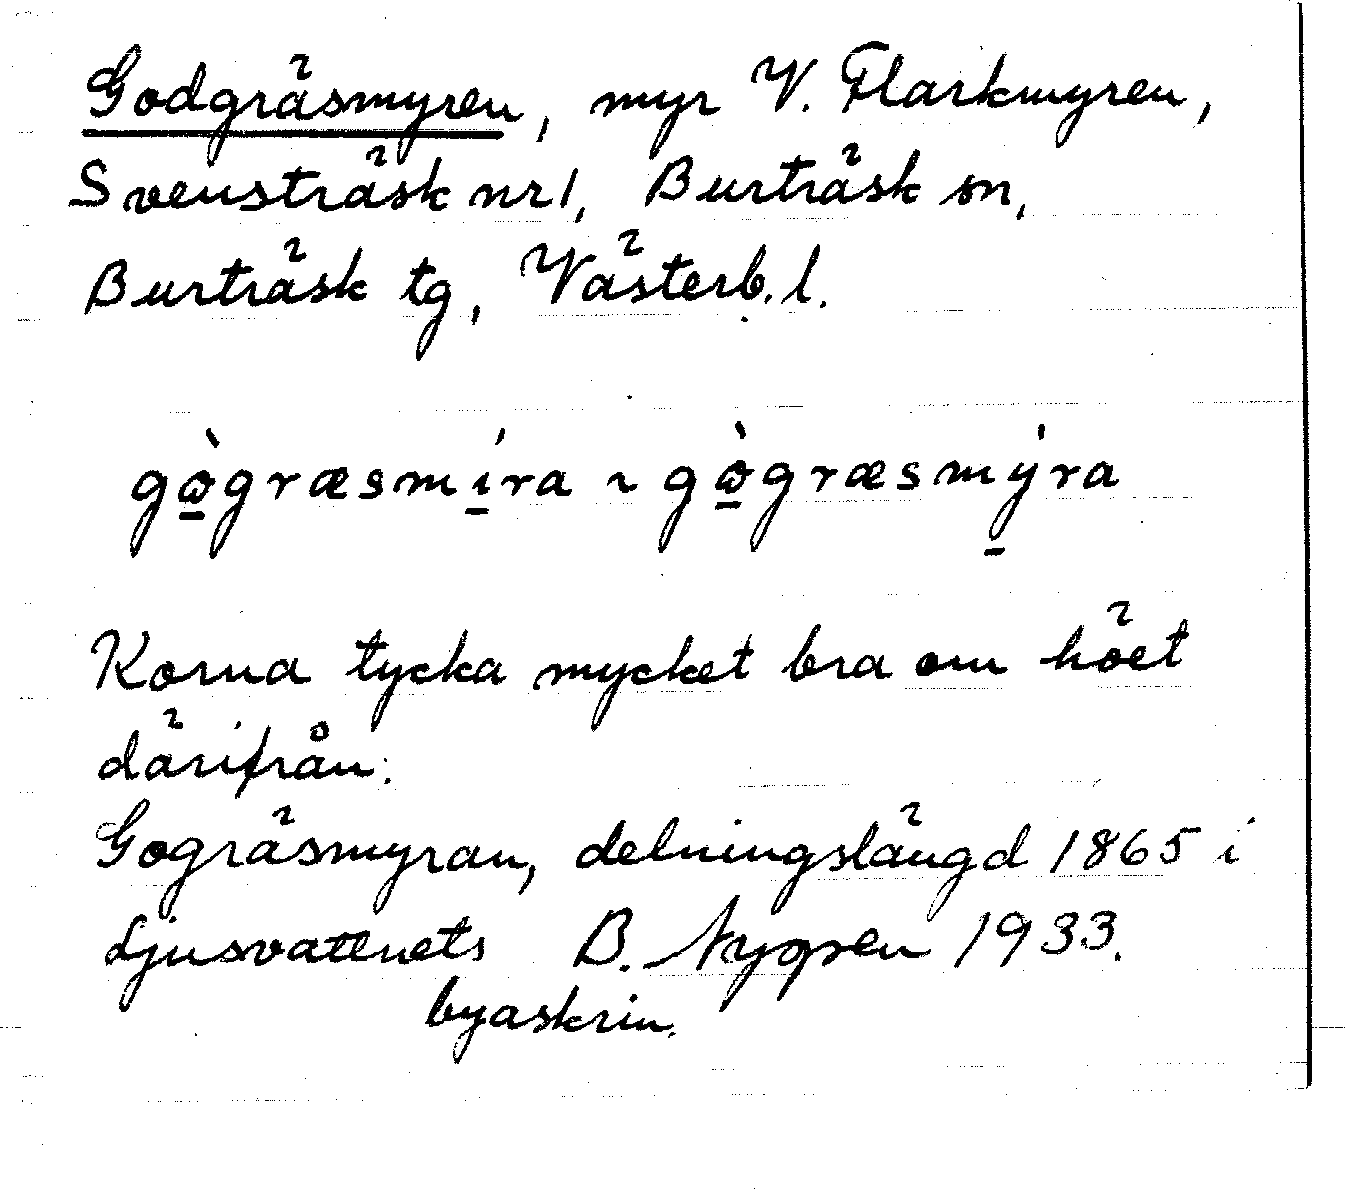 Godgräsmyren, myr V. Flarkmyren,
Svensträsk nr 1, Burträsk sn,
Burträsk tg, Västerb. l.
gὼ̱græsmí̱ra ~ gὼ̱græsmý̱ra
Korna tycka mycket bra om höet
därifrån.
Gogräsmyran, delningslängd 1865 i
Ljusvattnets B. Nygren 1933.
byaskrin.